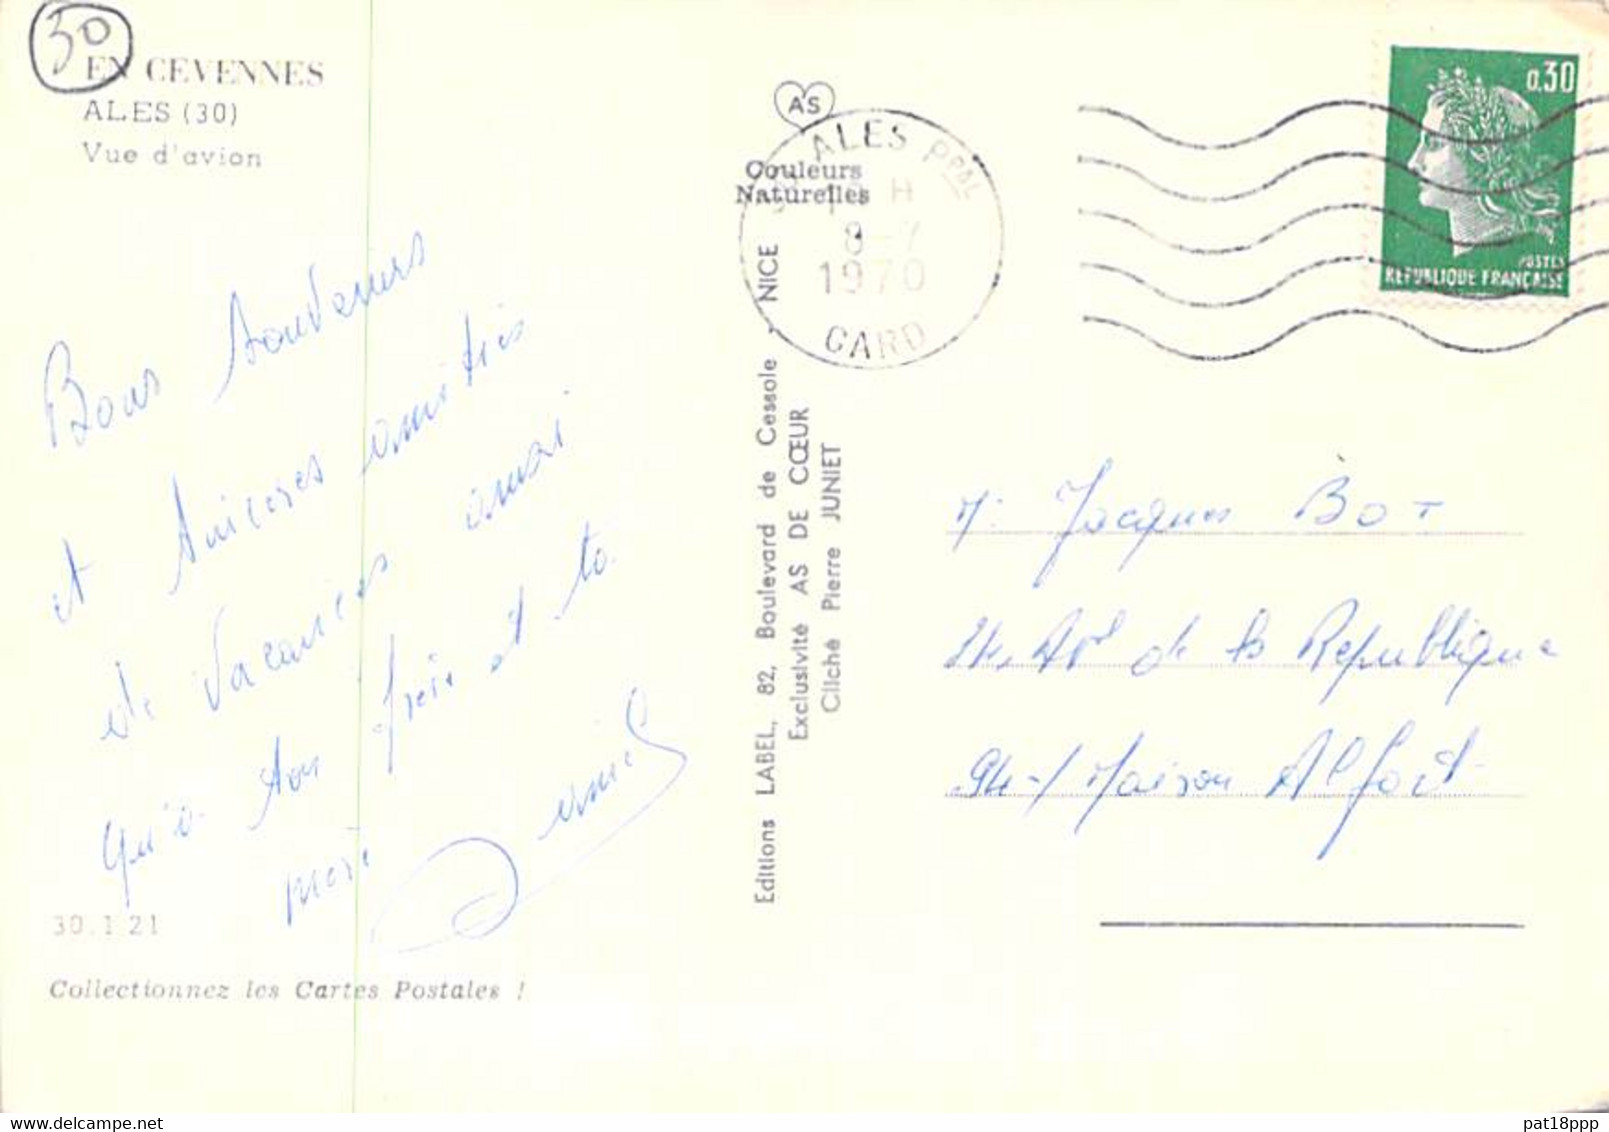 30
EN CEVENNES
ALES (30)
Vue d'avion
Bons souvenirs
et sincères amitiés
de vacances ainsi
qu'à ton frère et ta
mère
30.121
Collectionnez les Cartes Postales !
AS
Couleurs
Naturelles
Editions LABEL, 82, Boulevard de Cessole - NICE
Exclusivité AS DE CŒUR
Cliché Pierre JUNIET
ALES PPAL
H
8-7
1970
GARD
0,30
POSTES
REPUBLIQUE FRANÇAISE
M. Jacques BOT
24, Av de la Republique
94-/ Maison Alfort
www.delcampe.net
pat18ppp